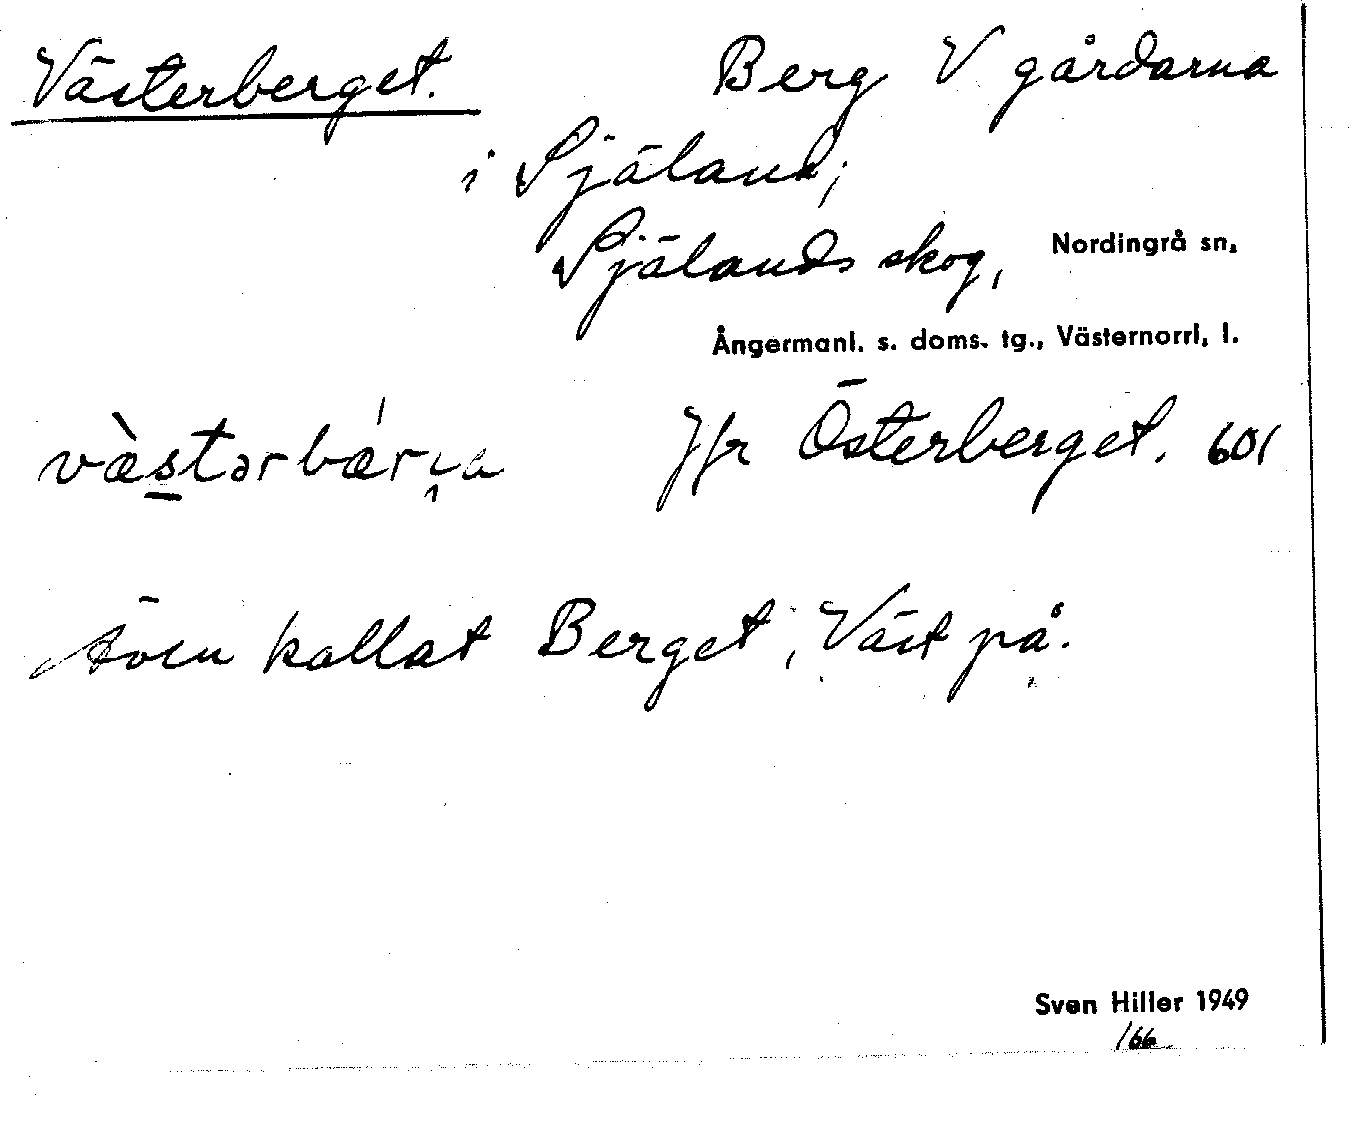 Västerberget. Berg V gårdarna
i Själand;
Själands skog, Nordingrå sn.
Ångermanl. s. doms. tg., Västernorrl. l.
Jfr Österberget. 601
Även kallat Berget, Väst på.
Sven Hiller 1949
166